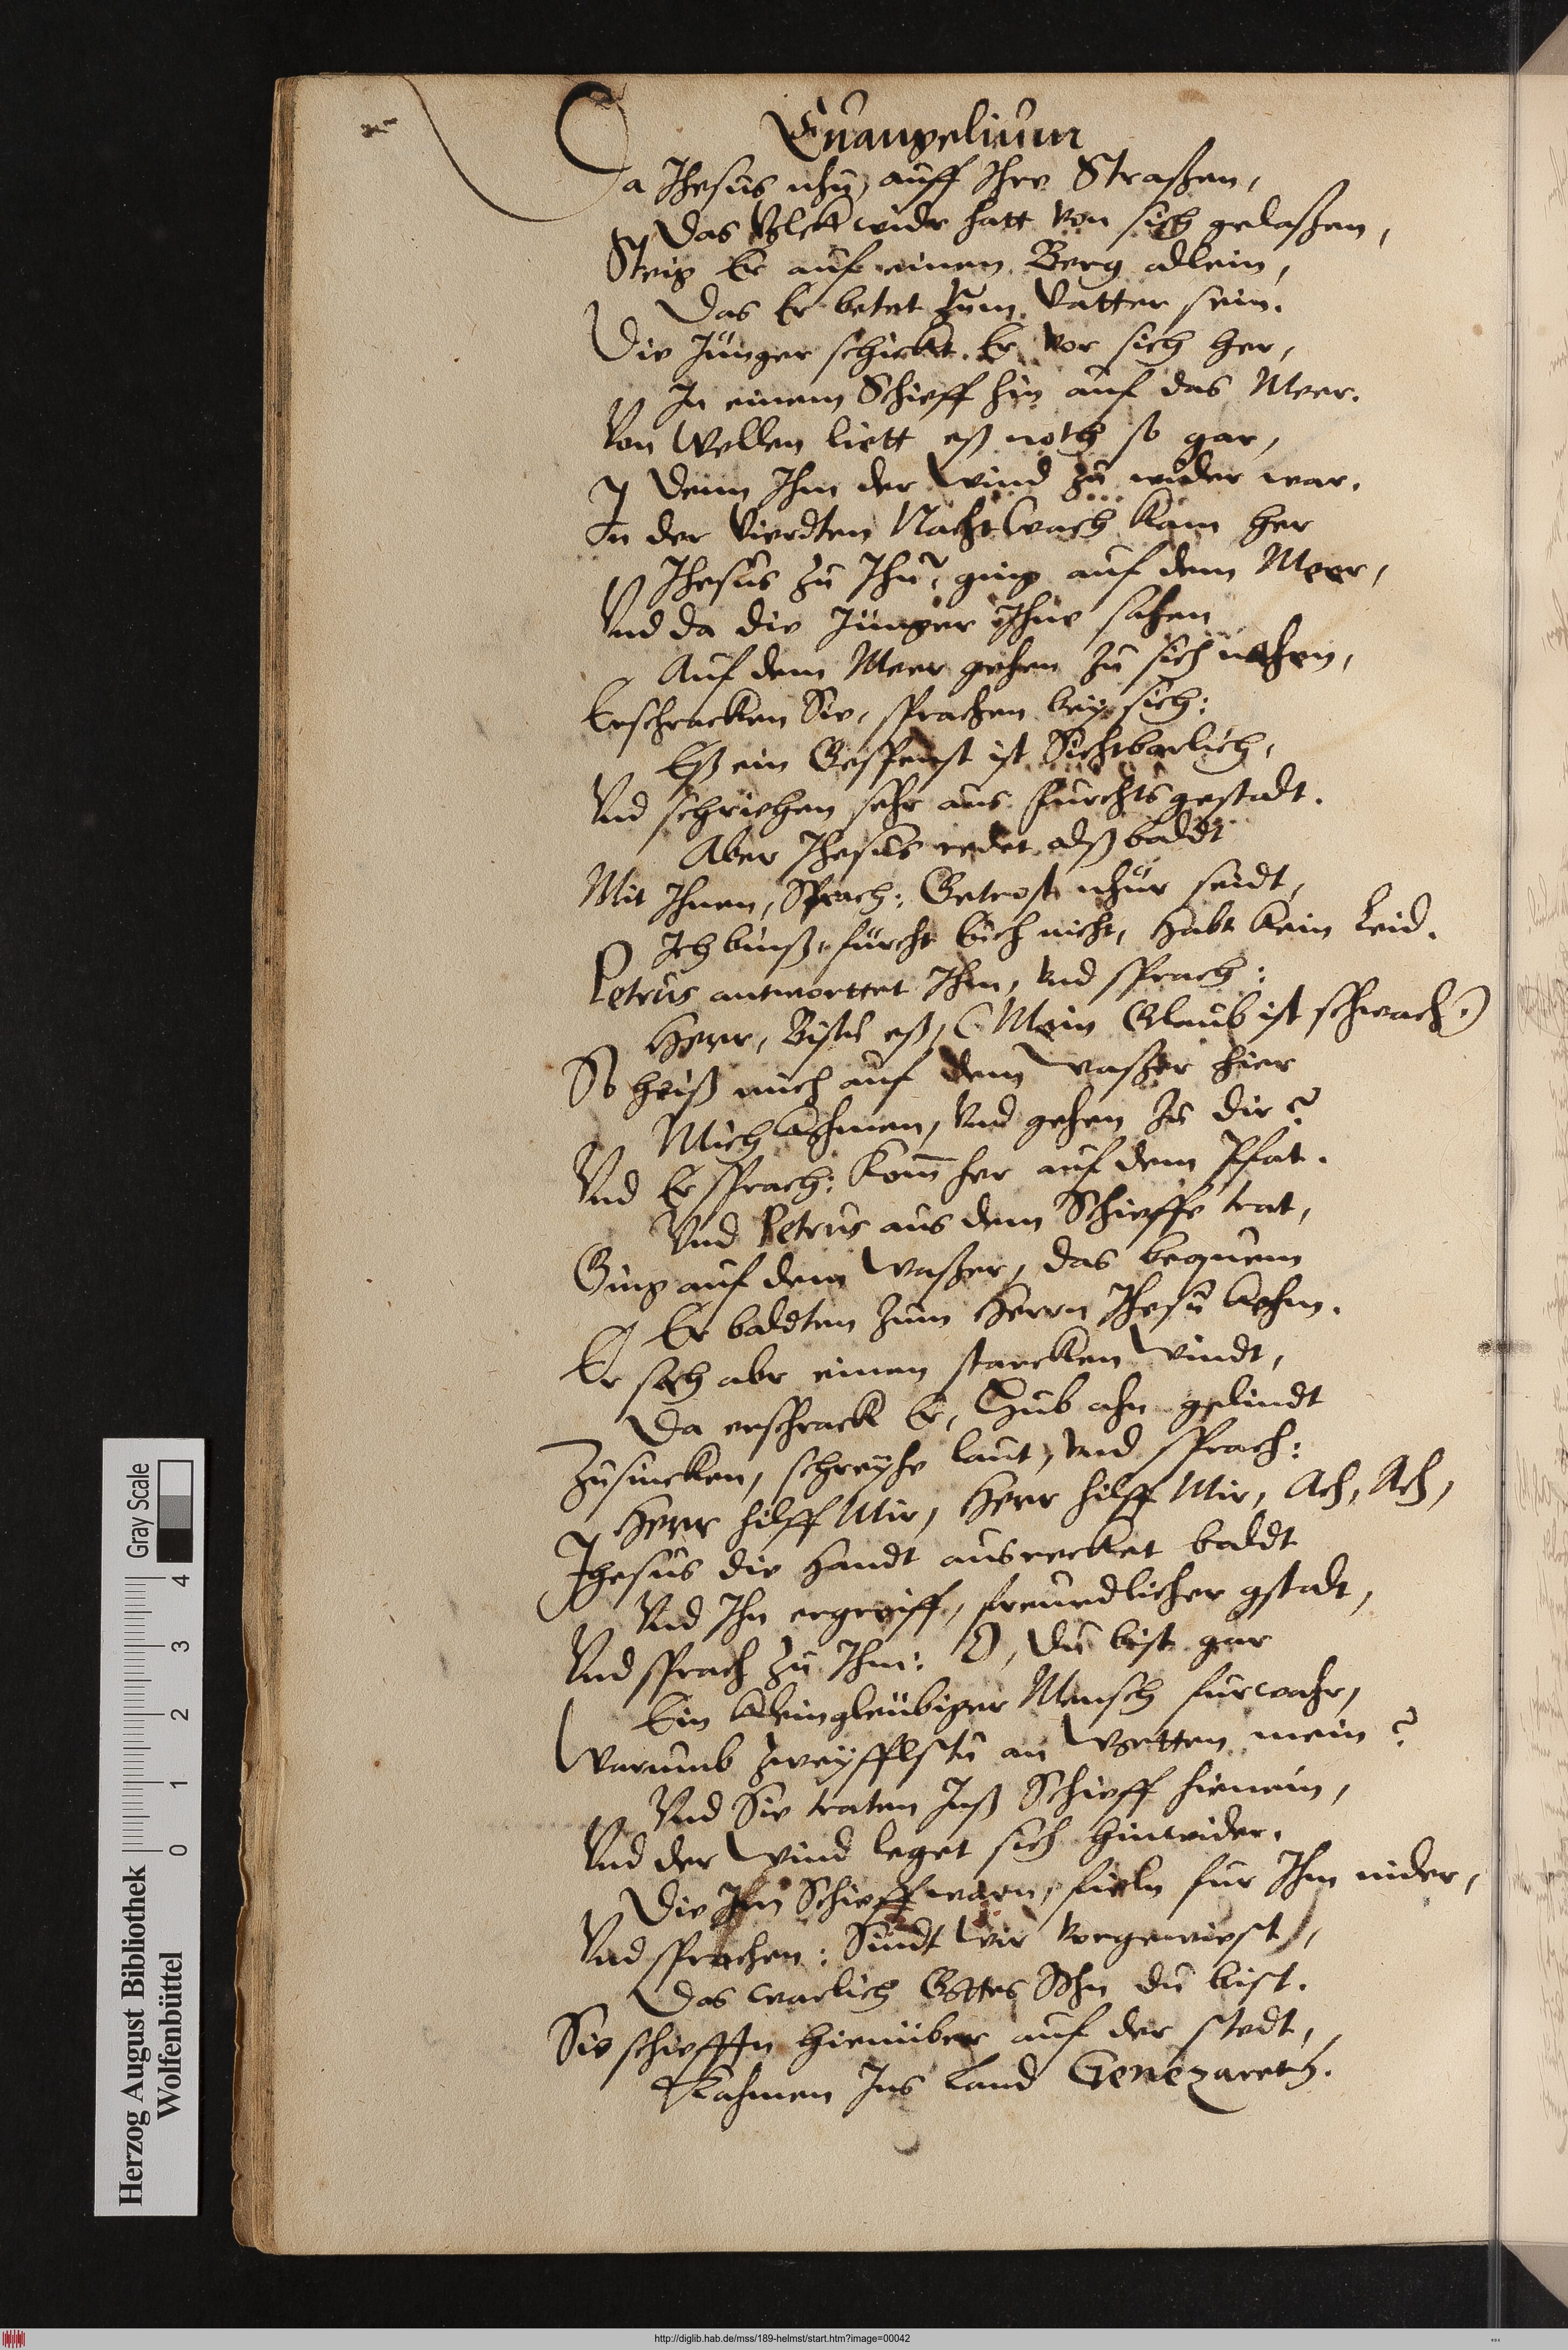 Euangelium
Da Jhesus nhu, auff Ihre Straßen,
Das Volck widr hatt von sich gelaßen,
Steig Er auf einen Berg allein,
Das Er betet zum Vatter sein.
Die Jünger schickt Er vor sich her,
In einem Schieff hin auf das Meer.
Von Wellen liett eß noth so gar,
Denn Ihm der Wind zu wider war.
In der Vierdten Nacht Wach kam her
Jhesus zu Ihn, ging auf dem Meer,
Vnd da die Jünger Ihne sahen
Auf dem Meer gehen zu sich nahen,
Erschracken Sie, sprachen bey sich:
Eß ein Gespenst ist Sichtbarlich,
Vnd schriehen sehr aus furchts gestadt.
Aber Jhesus redet alß baldt
Mit Ihnen, Sprach: Getrost nhur seidt,
Ich binß, fürcht Euch nicht, habt kein Leid.
Petrus antworttet Ihm, vnd sprach:
Herr, Bistu eß, (Mein Glaub ist schwach.)
So heiß mich auf dem Waßer hier
Mich kohmen, Vnd gehen zu dir?
Vnd Er sprach: Kom̄ her auf dem Pfat.
Vnd Petrus aus dem Schieffe trat,
Ging auf dem Waßer, das bequem
Er baldten zum Herrn Jhesu kehm.
Er sach abr einen starcken Windt,
Da erschrack Er, Hub ahn gelindt
Zusincken, schreyhe laut, vnd sprach:
Herr hilff Mir, Herr hilff Mir, Ach, Ach,
Jhesus die Handt ausrecket baldt
Vnd Ihn ergreiff, freundlicher gstadt,
Vnd sprach zu Ihm: O, du bist gar
Ein kleingleubiger Mensch furwahr,
Warumb zweyffelstu an Wortten mein?
Vnd Sie traten Inß Schieff hienein,
Vnd der Wind leget sich hinwider.
Die Im Schieff warn, fieln fur Ihm nider,
Vnd sprachen: Sindt Wir vorgewiest,
Das warlich Gottes Sohn du bist.
Sie schiefften hienüber auf der stedt,
Kahmen Ins Land Genezareth.
Herzog August Bibliothek
Wolfenbüttel
0 1 2 3 4
Gray Scale
http://diglib.hab.de/mss/189-helmst/start.htm?image=00042